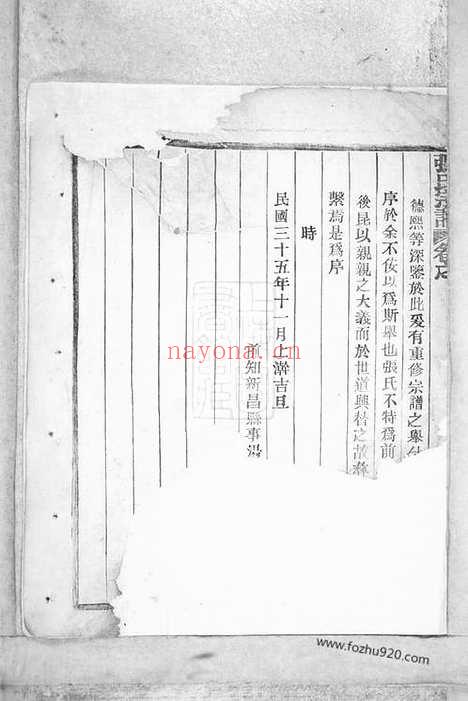 張氏宗譜
德熙等深鑒於此爰有重修宗譜之舉
序於余不佞以爲斯舉也張氏不特爲前
後昆以親親之大義而於世道興替之故
繫焉是爲序
時
民國三十五年十一月上澣吉旦
前知新昌縣事
nayona.cn
www.fozhu920.com